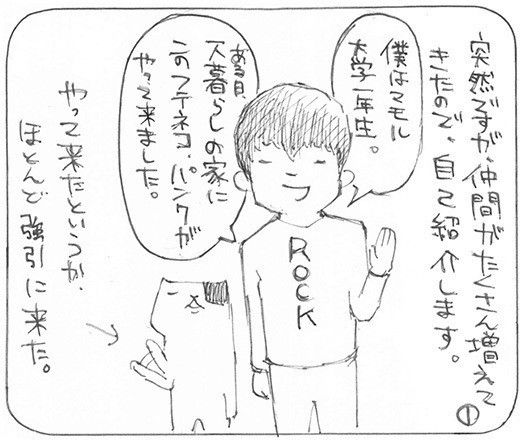 突然ですが、仲間がたくさん増えて
きたので、自己紹介します。
①
僕はマモル
大学一年生。
ある日、
一人暮らしの家に
このフテネコ、パンクが
やって来ました。
ROCK
やって来たというか、
ほとんど強引に来た。